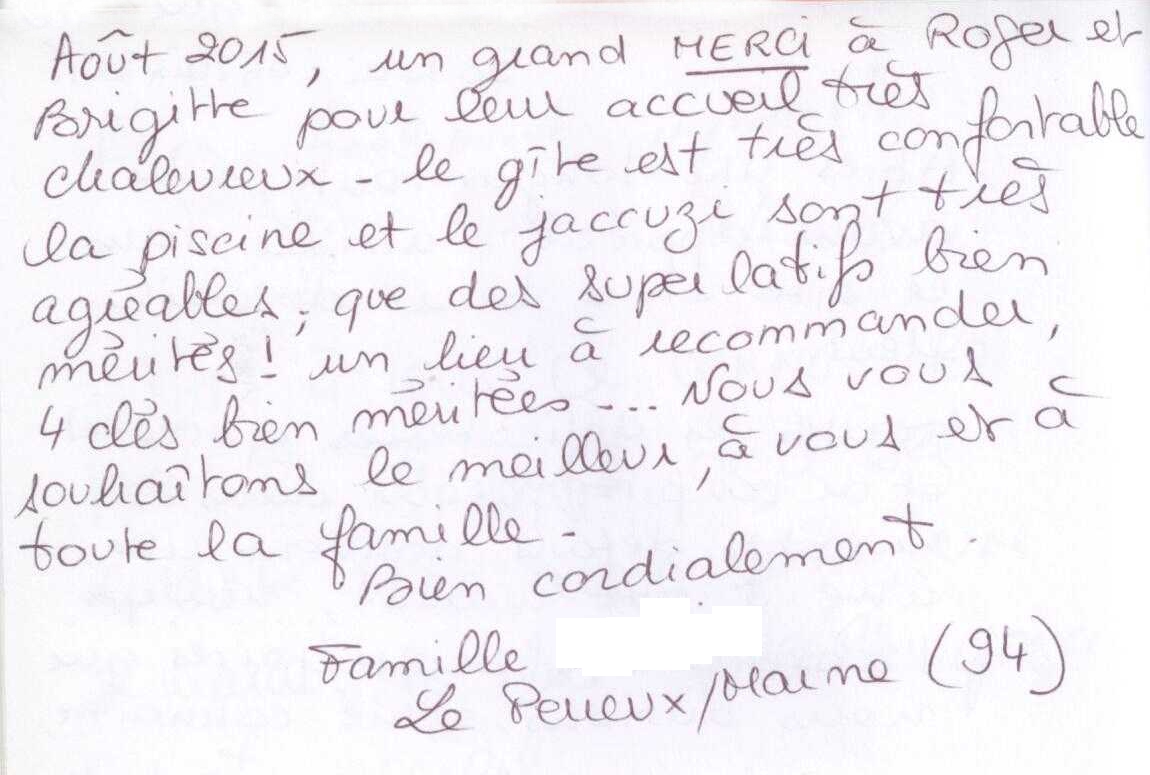 Août 2015, un grand MERCi à Roger et
Brigitte pour leur accueil très
chaleureux le gîte est très confortable
la piscine et le jaccuzi sont très
agréables, que des superlatifs bien
mérités! un lieu à recommander,
4 clés bien méritées... Nous vous
souhaîtons le meilleur, à vous et à
toute la famille.
Bien cordialement.
Famille
Le Perreux/Marne (94)